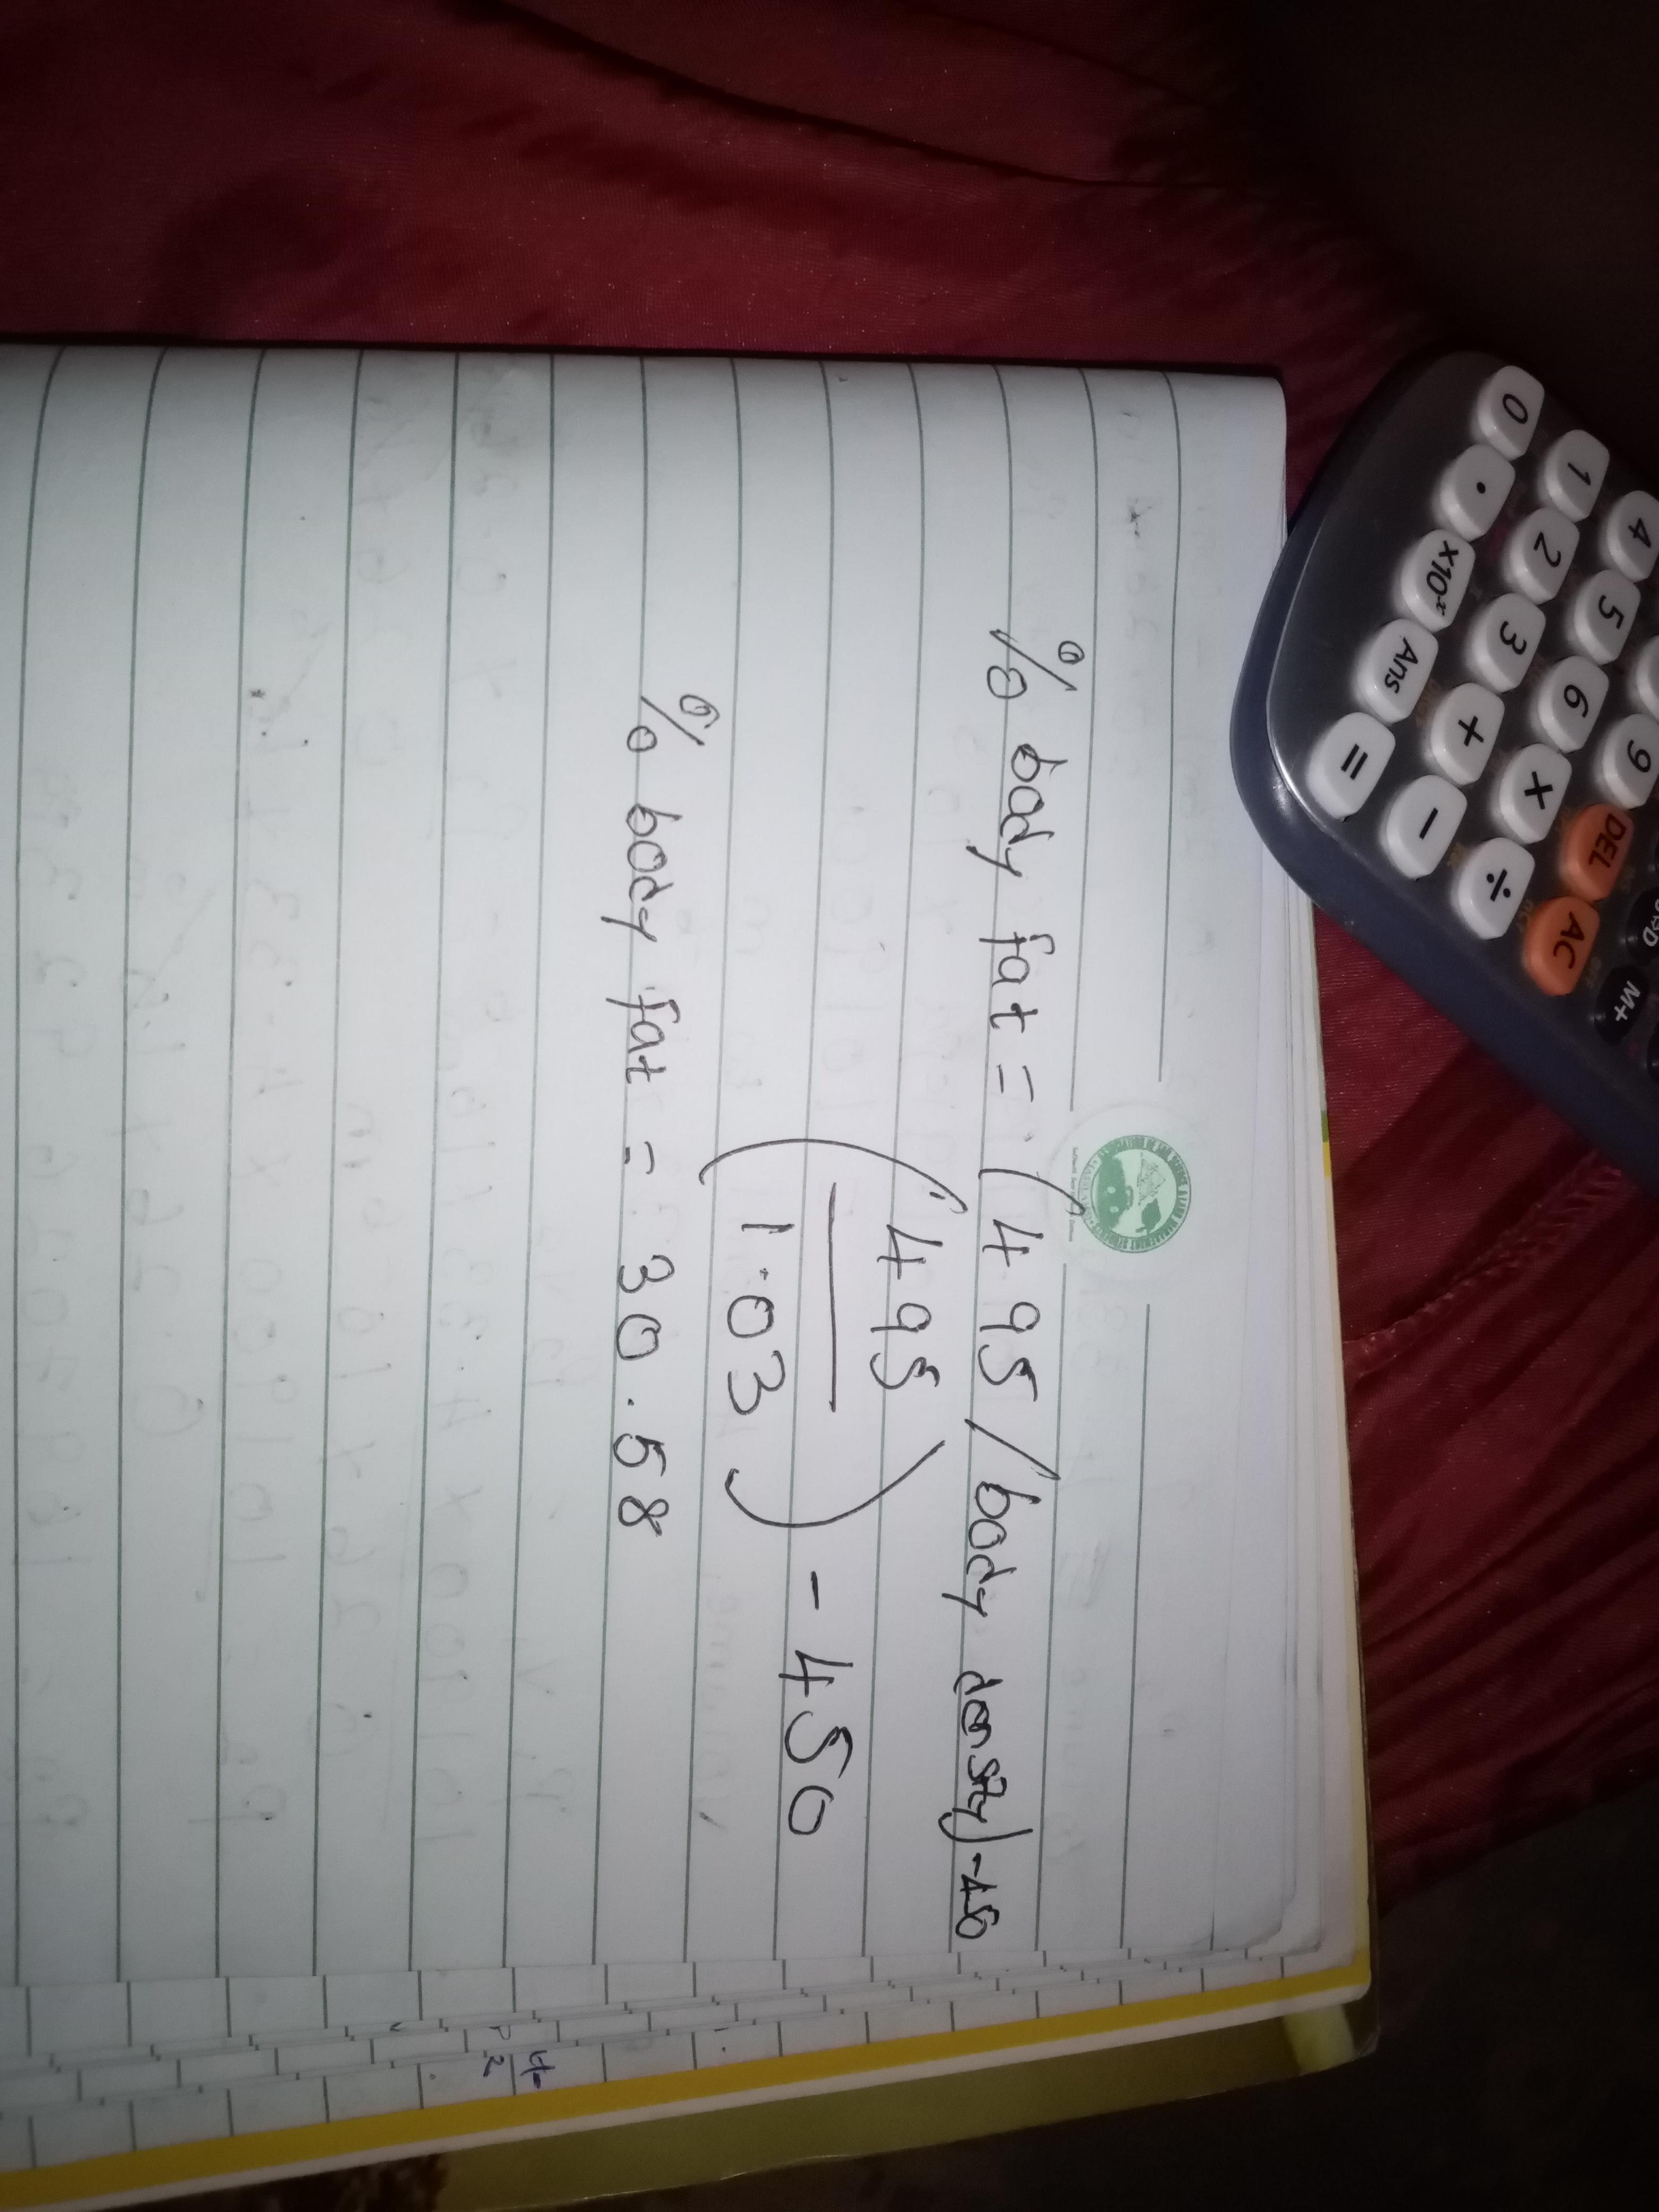 % body fat = (495/body density)-450
(495
1.03) - 450
% body fat = 30.58
0
.
x10ˣ
Ans
=
1
2
3
+
-
4
5
6
x
÷
9
DEL
AC
M+